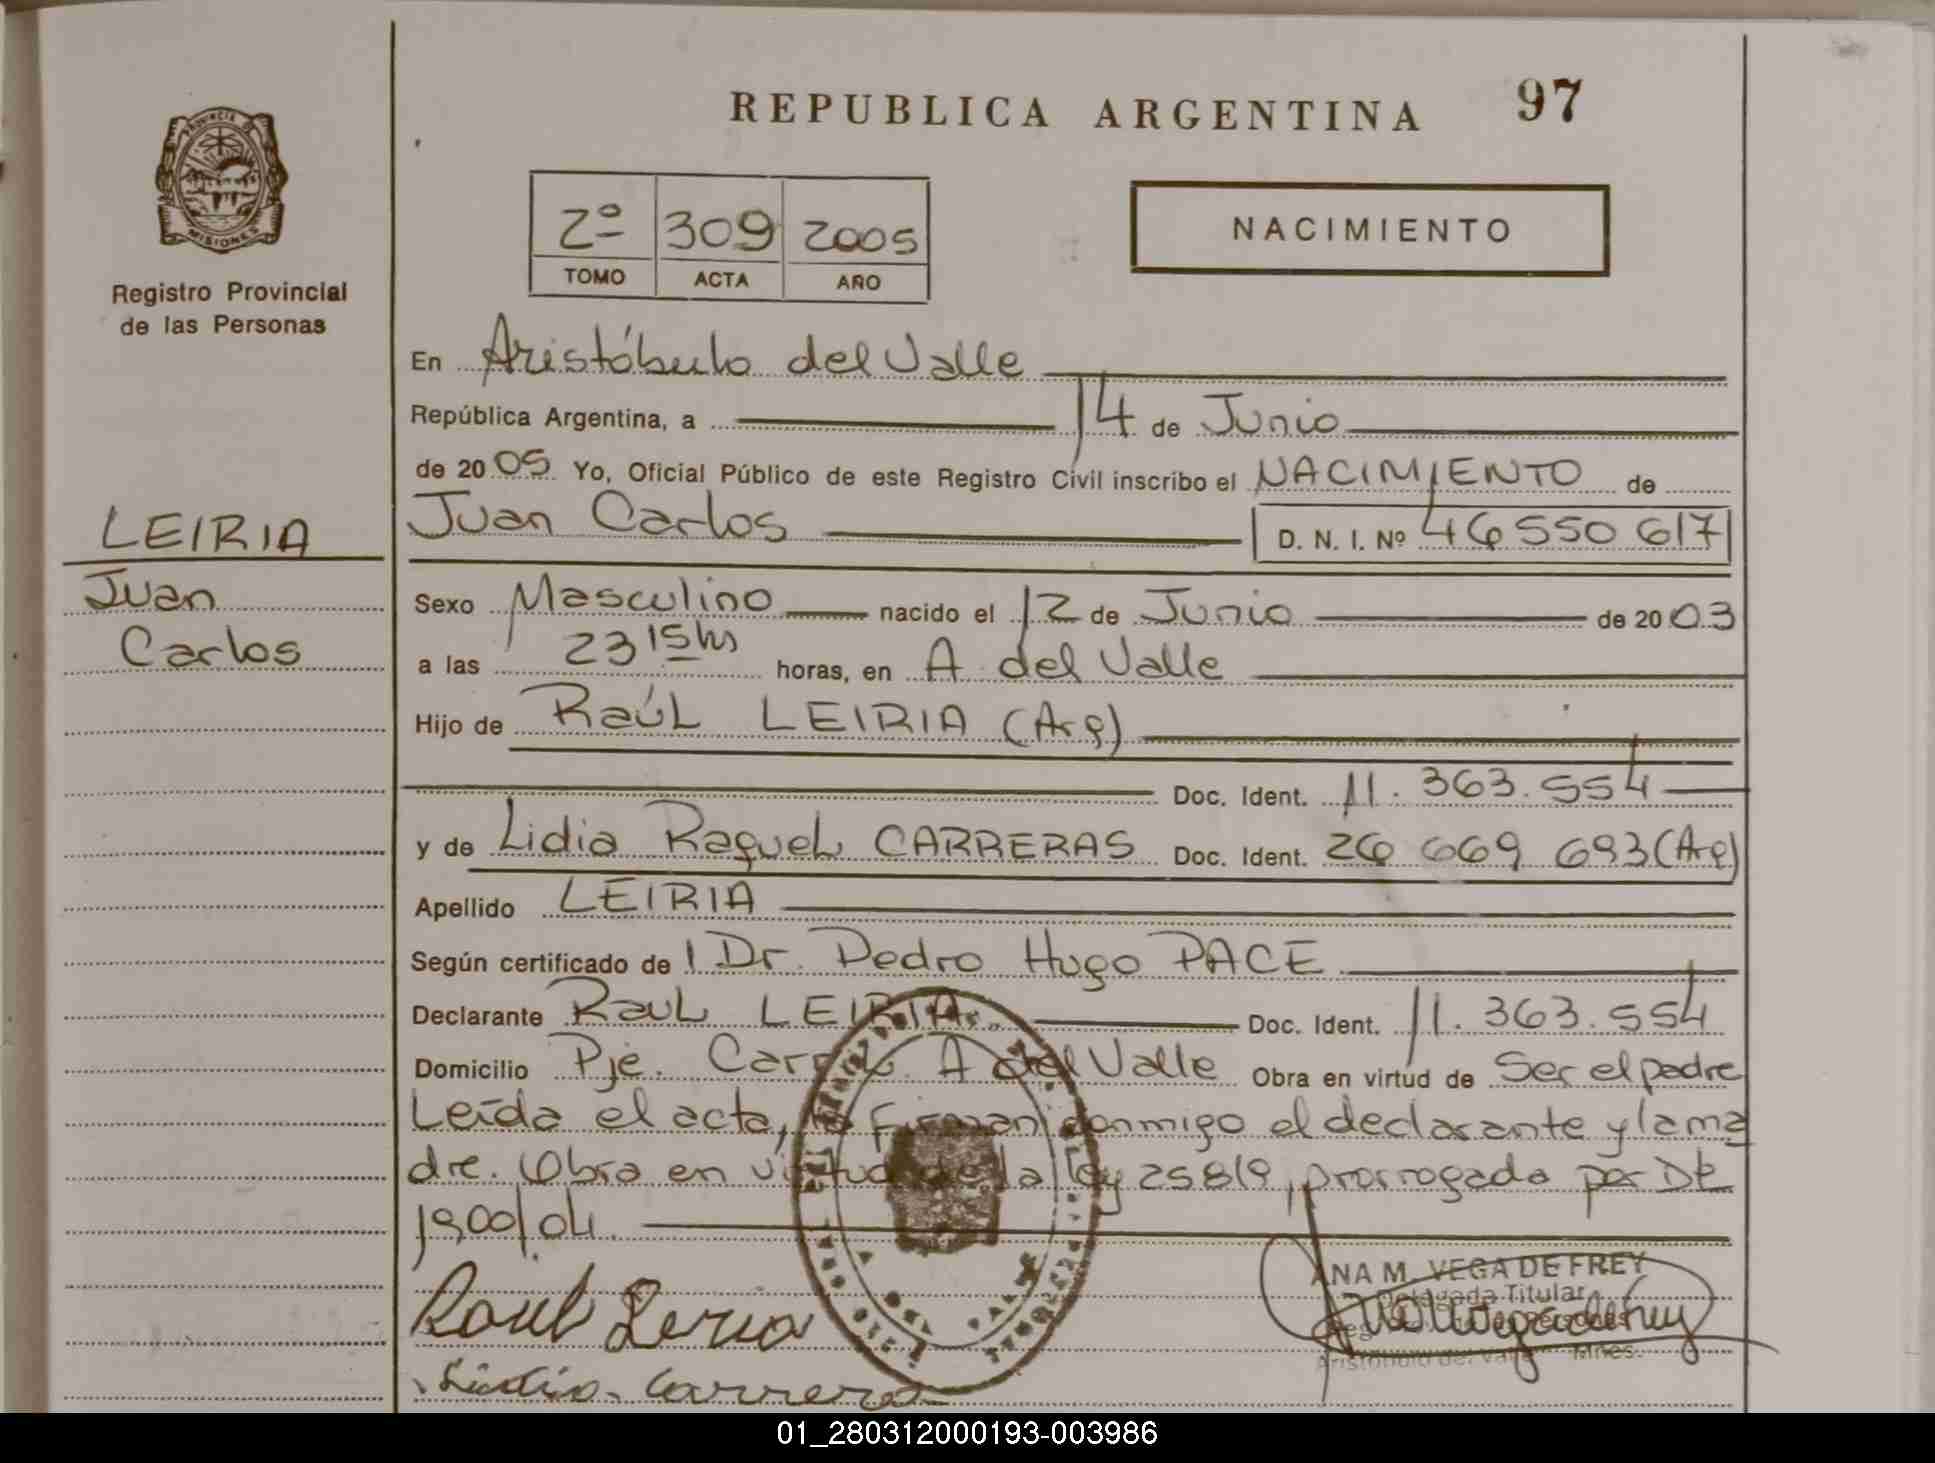 REPUBLICA ARGENTINA 97
PROVINCIA DE
MISIONES
Registro Provincial
de las Personas
2º 309 2005
TOMO ACTA AÑO
NACIMIENTO
En Aristóbulo del Valle
República Argentina, a 14 de Junio
de 2005 Yo, Oficial Público de este Registro Civil inscribo el NACIMIENTO de
LEIRIA
Juan
Carlos
Juan Carlos D. N. I. Nº 46 550 617
Sexo Masculino nacido el 12 de Junio de 2003
a las 23 15 hs horas, en A. del Valle
Hijo de Raúl LEIRIA (Arg)
Doc. Ident. 11.363.554
y de Lidia Raquel CARRERAS Doc. Ident. 26 669 693 (Arg)
Apellido LEIRIA
Según certificado de l Dr. Pedro Hugo PACE
Declarante Raul LEIRIA Doc. Ident. 11.363.554
Domicilio Pje. A del Valle Obra en virtud de Ser el padre
Leída el acta, la firman conmigo el declarante y la ma
dre. Obra en virtud de la ley 25819, prorrogada por DR
1900/04.
Raul Leria
Lidia Carrera
ANA M. VEGA DE FREY
Delegada Titular
Aristóbulo del Valle Mnes.
01_280312000193-003986